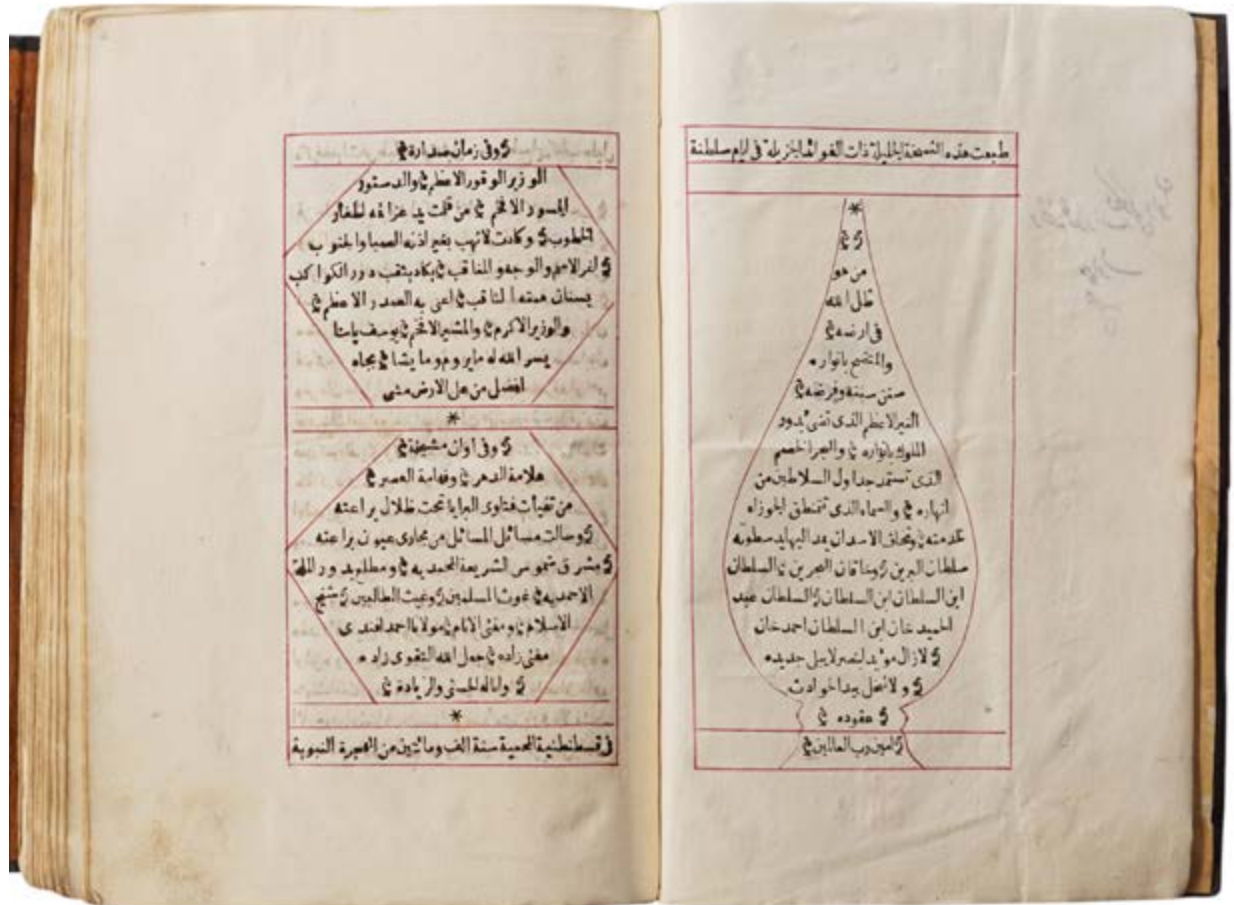 طبعت هذه النسخة الجليلة ذات الفوائد الجزيلة فى ايام سلطنة
*
من هو
ظل الله
فى ارضه
والمتضح بانواره
سنن سننه وفرضه
النير الاعظم الذى تضئ بدور
الملوك بانواره والبحر الخضم
الذى تستمد جداول السلاطين من
انهاره والسماء الذى تتمنطق الجوزاء
لخدمته الاسدان سطوته
سلطان البرين وخاقان البحرين السلطان
ابن السلطان ابن السلطان السلطان عبد
الحميد خان ابن السلطان احمد خان
لازال مؤيدا بنصر لا يبلى جديده
ولا تنحل بيد الحوادث
عقوده
امين رب العالمين
وفى زمان صدارة
الوزير الوقور الاعظم والدستور
الجسور الافخم من قلمت يد عزائمه اظفار
الخطوب وكادت لا تهب بغير اذنه الصبا والجنوب
اغر الاسم والوجه والمناقب يكاد يثقب درر الكواكب
بسنان همته الثاقب اعنى به الصدر الاعظم
والوزير الاكرم والمشير الافخم يوسف پاشا
يسر الله له ما يروم وما يشا بجاه
افضل من على الارض مشى
*
وفى اوان مشيخة
علامة الدهر وفهامة العصر
من تفيأت فتاوى البرايا تحت ظلال يراعته
وسالت مسائل المسائل من مجارى عيون براعته
مشرق شموس الشريعة المحمديه ومطلع بدور الملة
الاحمديه غوث المسلمين وغيث الطالبين شيخ
الاسلام ومفتى الانام مولانا احمد افندى
مفتى زاده جعل الله التقوى زاده
واناله الحسنى والزيادة
*
فى قسطنطنية المحمية سنة الف ومائتين من الهجرة النبوية